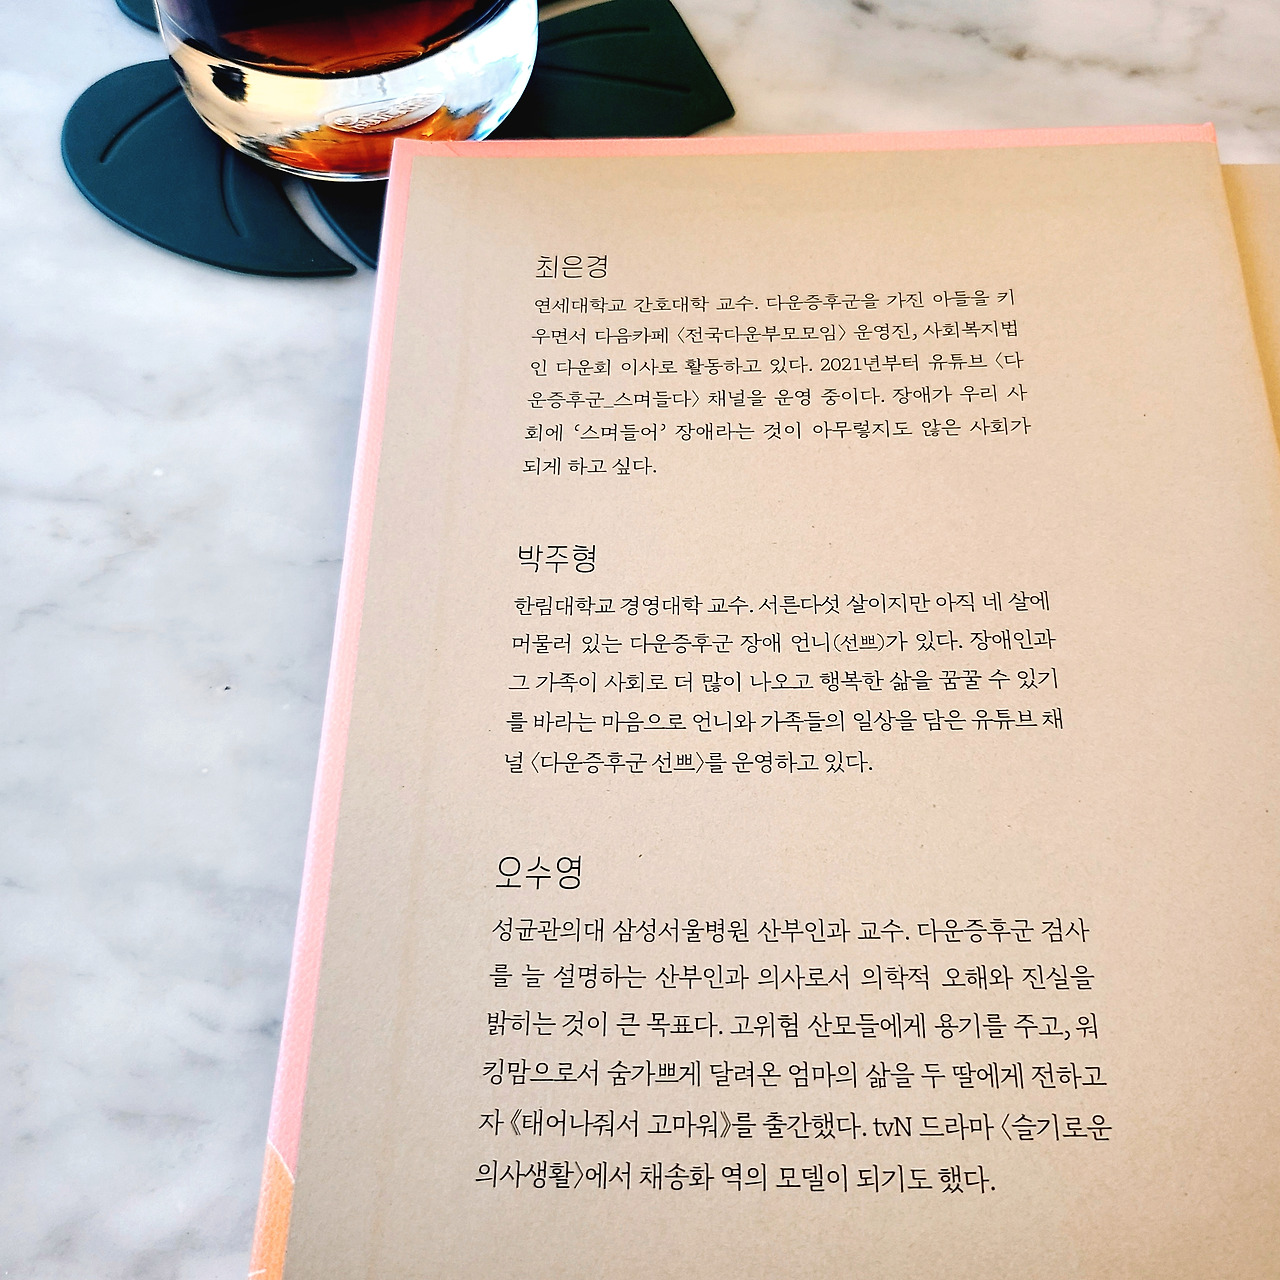 최은경
연세대학교 간호대학 교수. 다운증후군을 가진 아들을 키
우면서 다음카페 〈전국다운부모모임〉 운영진, 사회복지법
인 다운회 이사로 활동하고 있다. 2021년부터 유튜브 〈다
운증후군_스며들다〉 채널을 운영 중이다. 장애가 우리 사
회에 ‘스며들어’ 장애라는 것이 아무렇지도 않은 사회가
되게 하고 싶다.
박주형
한림대학교 경영대학 교수. 서른다섯 살이지만 아직 네 살에
머물러 있는 다운증후군 장애 언니(선쁘)가 있다. 장애인과
그 가족이 사회로 더 많이 나오고 행복한 삶을 꿈꿀 수 있기
를 바라는 마음으로 언니와 가족들의 일상을 담은 유튜브 채
널 〈다운증후군 선쁘〉를 운영하고 있다.
오수영
성균관의대 삼성서울병원 산부인과 교수. 다운증후군 검사
를 늘 설명하는 산부인과 의사로서 의학적 오해와 진실을
밝히는 것이 큰 목표다. 고위험 산모들에게 용기를 주고, 워
킹맘으로서 숨가쁘게 달려온 엄마의 삶을 두 딸에게 전하고
자 《태어나줘서 고마워》를 출간했다. tvN 드라마 〈슬기로운
의사생활〉에서 채송화 역의 모델이 되기도 했다.